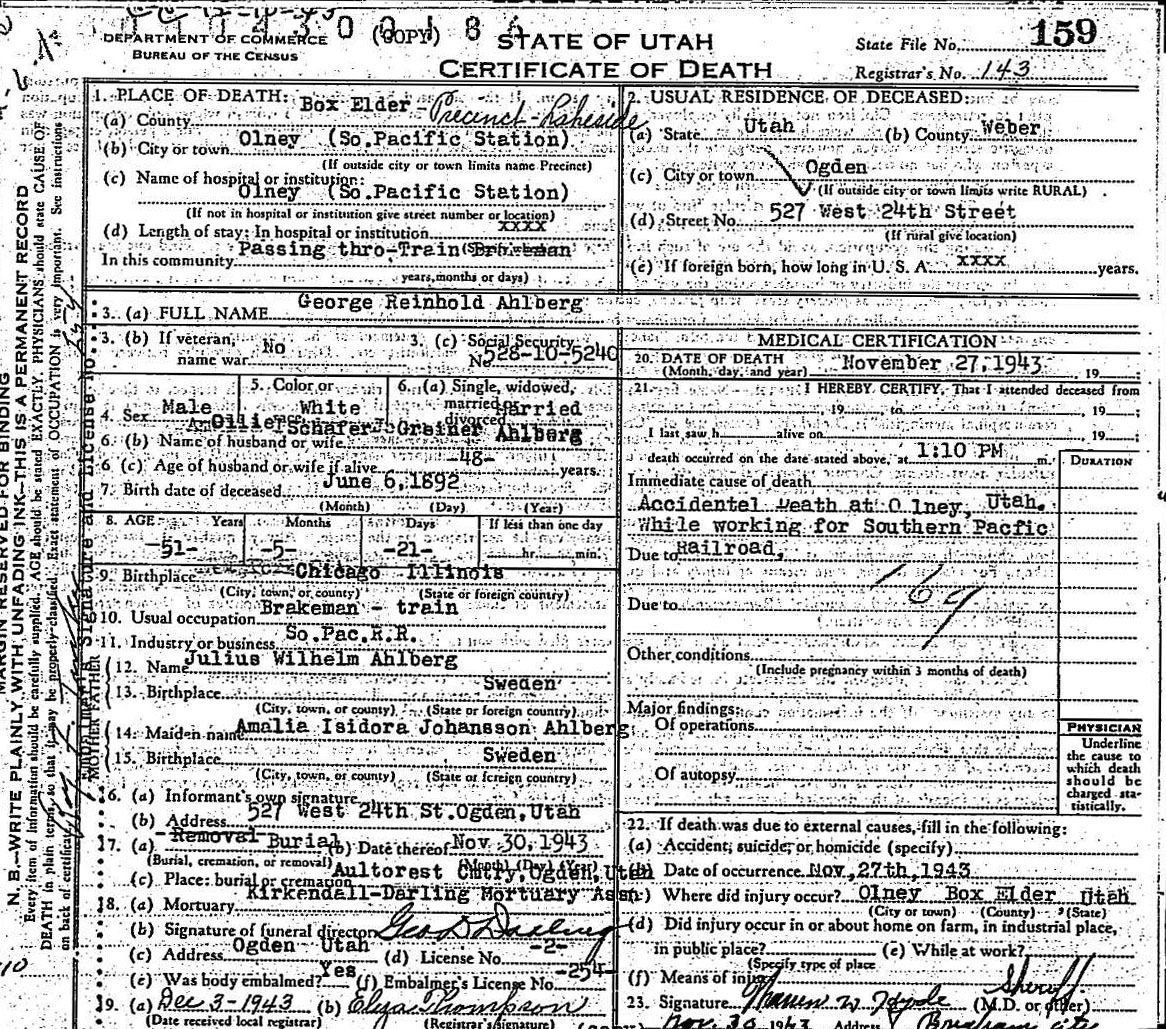 DEPARTMENT OF COMMERCE
BUREAU OF THE CENSUS
(COPY)
STATE OF UTAH
CERTIFICATE OF DEATH
State File No. 159
Registrar's No. 143
MARGIN RESERVED FOR BINDING
N. B.—WRITE PLAINLY WITH UNFADING INK—THIS IS A PERMANENT RECORD
Every item of information should be carefully supplied. AGE should be stated EXACTLY. PHYSICIANS should state CAUSE OF
DEATH in plain terms, so that it may be properly classified. Exact statement of OCCUPATION is very important. See instructions
on back of certificate.
1. PLACE OF DEATH:
(a) County Box Elder - Precinct - Lakeside
(b) City or town Olney (So.Pacific Station)
(If outside city or town limits name Precinct)
(c) Name of hospital or institution:
Olney (So.Pacific Station)
(If not in hospital or institution give street number or location)
(d) Length of stay: In hospital or institution xxxx
In this community Passing thro-Train Brakeman
years, months or days)
2. USUAL RESIDENCE OF DECEASED:
(a) State Utah (b) County Weber
(c) City or town Ogden
(If outside city or town limits write RURAL)
(d) Street No. 527 West 24th Street
(If rural give location)
(e) If foreign born, how long in U. S. A. xxxx years.
3. (a) FULL NAME George Reinhold Ahlberg
3. (b) If veteran, name war No
3. (c) Social Security No. 528-10-5240
4. Sex Male
5. Color or race White
6. (a) Single, widowed, married or divorced Married
6. (b) Name of husband or wife Ollie Schafer Greiner Ahlberg
6 (c) Age of husband or wife if alive -48- years.
7. Birth date of deceased June 6,1892
(Month) (Day) (Year)
8. AGE Years Months Days If less than one day
-51- -5- -21- hr. min.
9. Birthplace Chicago Illinois
(City, town, or county) (State or foreign country)
10. Usual occupation Brakeman - train
11. Industry or business So.Pac.R.R.
FATHER
12. Name Julius Wilhelm Ahlberg
13. Birthplace Sweden
(City, town, or county) (State or foreign country)
MOTHER
14. Maiden name Amalia Isidora Johansson Ahlberg
15. Birthplace Sweden
(City, town, or county) (State or foreign country)
16. (a) Informant's own signature
(b) Address 527 West 24th St.Ogden,Utah
17. (a) Removal Burial (b) Date thereof Nov.30,1943
(Burial, cremation, or removal) (Month) (Day) (Year)
(c) Place: burial or cremation Aultorest Cmtry,Ogden,Utah
18. (a) Mortuary Kirkendall-Darling Mortuary Assn
(b) Signature of funeral director Geo D Darling
(c) Address Ogden Utah (d) License No. -2-
(e) Was body embalmed? Yes (f) Embalmer's License No. -254-
19. (a) Dec 3-1943 (b) Eliza Thompson
(Date received local registrar) (Registrar's signature)
MEDICAL CERTIFICATION
20. DATE OF DEATH November 27,1943 , 19 ;
(Month, day, and year)
21. I HEREBY CERTIFY, That I attended deceased from
, 19 , to , 19 ;
I last saw h alive on , 19 ;
death occurred on the date stated above, at 1:10 PM m.
DURATION
Immediate cause of death
Accidental Death at Olney, Utah.
While working for Southern Pacfic
Due to Railroad,
169
Due to
Other conditions
(Include pregnancy within 3 months of death)
Major findings:
Of operations
Of autopsy
PHYSICIAN
Underline
the cause to
which death
should be
charged sta-
tistically.
22. If death was due to external causes, fill in the following:
(a) Accident, suicide, or homicide (specify)
(b) Date of occurrence Nov,27th,1943
(c) Where did injury occur? Olney Box Elder Utah
(City or town) (County) (State)
(d) Did injury occur in or about home on farm, in industrial place,
in public place? (e) While at work?
(Specify type of place
(f) Means of injury
23. Signature Warren W. Hyde Sheriff
(M.D. or other)
Nov. 30 1943 Address Brigham City